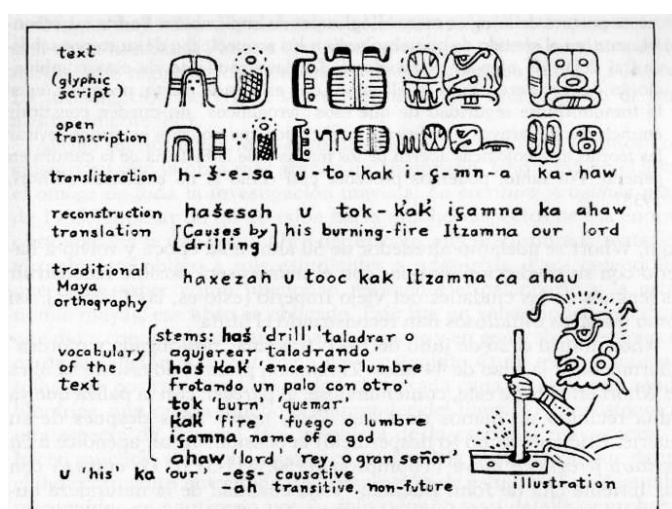 text
(glyphic script)
open transcription
transliteration h-š-e-sa u-to-kak i-ȼ-mn-a ka-haw
reconstruction hašesah u tok kak iȼamna ka ahaw
translation [Causes by drilling] his burning-fire Itzamna our lord
traditional Maya orthography haxezah u tooc kak Itzamna ca ahau
vocabulary of the text
stems: haš 'drill' 'taladrar o
agujerear taladrando'
haš kak 'encender lumbre
frotando un palo con otro'
tok 'burn' 'quemar'
kak 'fire' 'fuego o lumbre'
iȼamna name of a god
ahaw 'lord' 'rey, o gran señor'
u 'his' ka 'our' -es- causative
-ah transitive, non-future
illustration